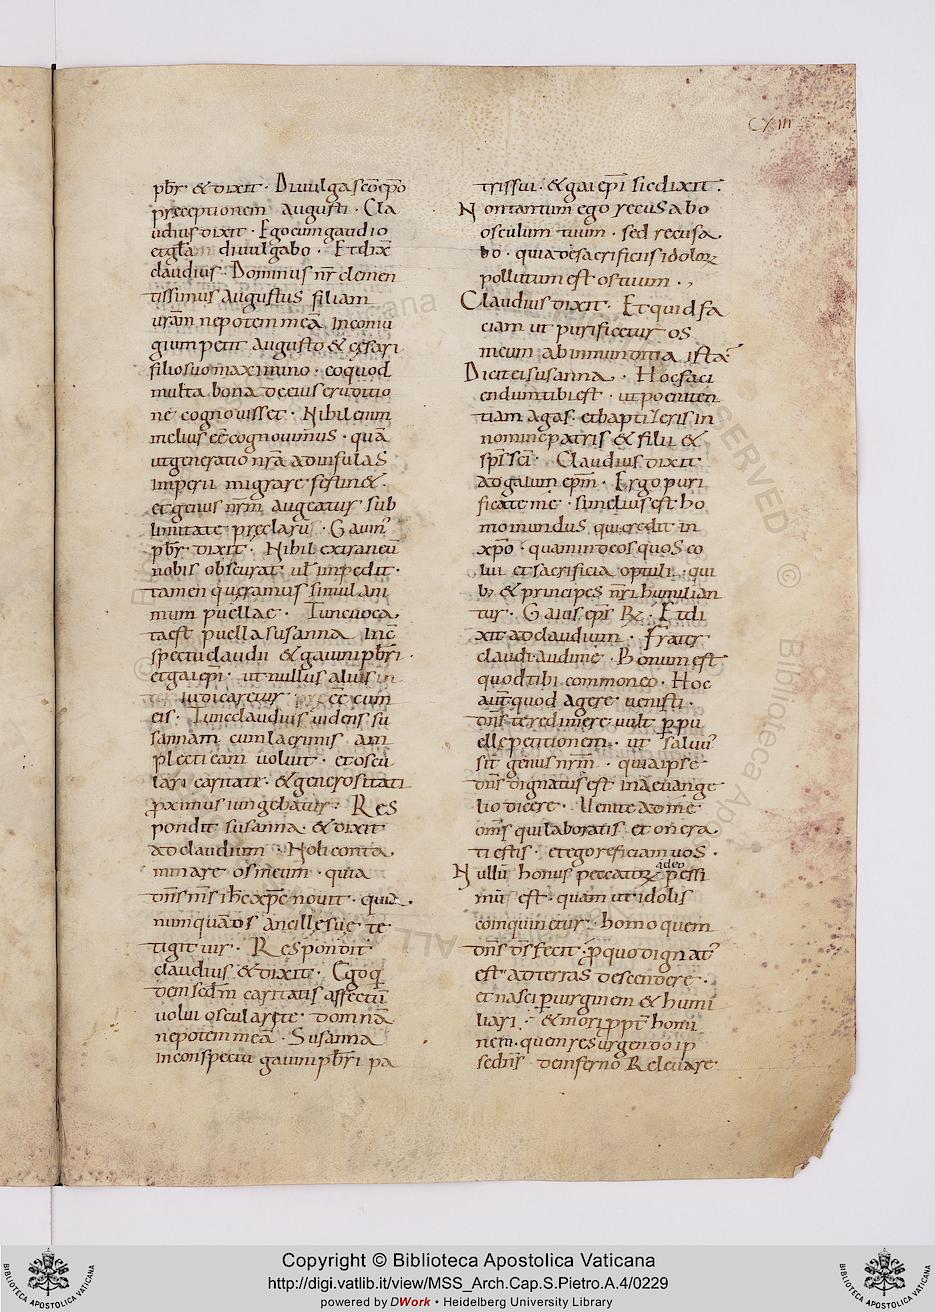 CXIII
pbr̄ · & dixit · Divulga s̄c̄o ep̄o
preceptionem augusti · Cla
udius dixit · Ego cum gaudio
et gl̄am divulgabo · Et dix̄
claudius : Dominus nr̄ clemen
tissimus augustus filiam
ur̄am nepotem meā in coniu
gium petit augusto & cęsari
filio suo maximino · eo quod
multa bona de eius eruditio
ne cognouisset · Nihil enim
melius eē cognouimus · quā
ut generatio nr̄a ad insulas
imperii migrare festin& ·
et genus nr̄m augeatur sub
limitate preclarū · Gauin'
pbr̄ · dixit · Nihil extraneū
nobis obscurat · ul̄ impedit ·
tamen queramus simul ani
mum puellae · Tunc uoca
ta est puella susanna · in c̄
spectu claudii & gauini pbr̄i ·
et gai ep̄i · ut nullus alius in
iudicaretur eē cum
eis · Tunc claudius uidens su
sannam cum lacrimis am
plecti eam uoluit · et oscu
lari caritate · & generositati
proximus iungebatur : Res
pondit susanna · & dixit
ad claudium · Noli conta
minare os meum · quia
dn̄s m̄s ih̄c xp̄c nouit · quia
numquā os ancille sue te
tigit uir · Respondit
claudius & dixit · Ego q̄
dem sedm̄ caritatis affectū
uolui osculari te · domnā
nepotem meā · Susanna
in conspectu gauini pbr̄i pa
tris sui · & gai ep̄i sic dixit :
Non tantum ego recusabo
osculum tuum · sed recusa
bo · quia de sacrificiis idoloꝝ
pollutum est os tuum · ,
Claudius dixit · Et quid fa
ciam ut purificetur os
meum ab inmunditia ista ·
Dicit ei susanna · Hoc faci
endum tibi est · ut poeniten
tiam agas · et baptizeris in
nomine patris & filii &
sp̄s s̄c̄i · Claudius dixit
ad gaium ep̄m · Ergo puri
ficate me · si melius est ho
mo mundus qui credit in
xp̄o · quam in deos quos co
lui et sacrificia optuli · qui
b; & principes nr̄i humilian
tur · Gaius ep̄s R̄ · Et di
xit ad claudium · frater
claudi audi me · Bonum est
quod tibi commoneo · Hoc
aut̄ quod agere uenisti ·
dn̄s te redimere uult p̄ pu
elle petitionem · ut saluū
sit genus nr̄m · quia ipse
dn̄s dignatus est in aeuange
lio dicere · Uenite ad me
omˉs qui laboratis et onera
ti estis · et ego reficiam uos ·
Nullū honus peccatoꝝ adeo pessi
mū est · quam ut idolis
coinquinetur · homo quem
dn̄s d̄s fecit · p̄ quo dignat'
est ad terras descendere ·
et nasci p̄ uirginem & humi
liari · & mori ppt̄ homi
nem · quem resurgendo ip
se dn̄s de inferno Releuare
Copyright © Biblioteca Apostolica Vaticana
http://digi.vatlib.it/view/MSS_Arch.Cap.S.Pietro.A.4/0229
powered by DWork • Heidelberg University Library